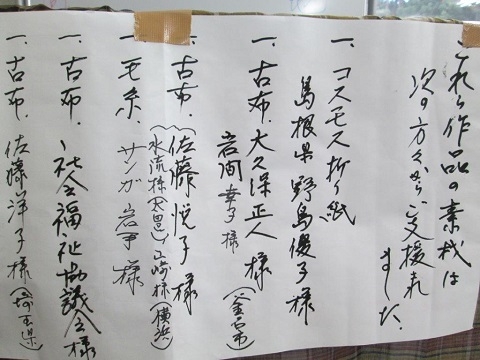 これら作品の素材は
次の方々からご支援されました。
一、コスモス折り紙
島根県 野島優子様
一、古布、大久保正人様
岩間幸子様(釜石市)
一、古布、佐藤悦子様
山崎様(横浜)
一、毛糸、サンガ岩手様
一、古布、社会福祉協議会様
一、古布、佐藤洋子様(埼玉県)